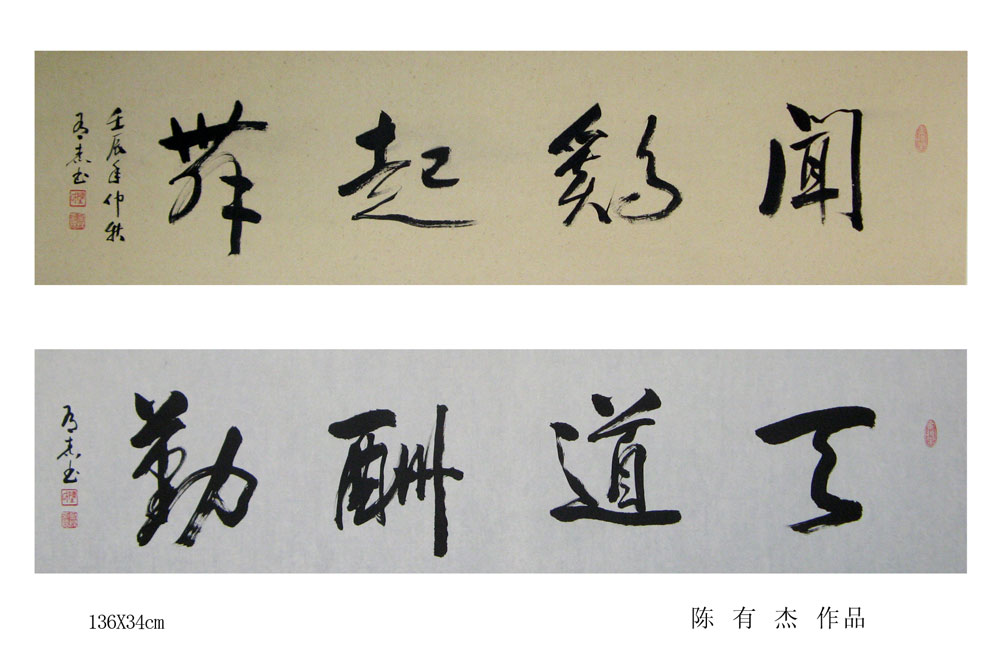 闻鸡起舞
壬辰年仲秋
有杰书
天道酬勤
有杰书
136X34cm
陈有杰作品